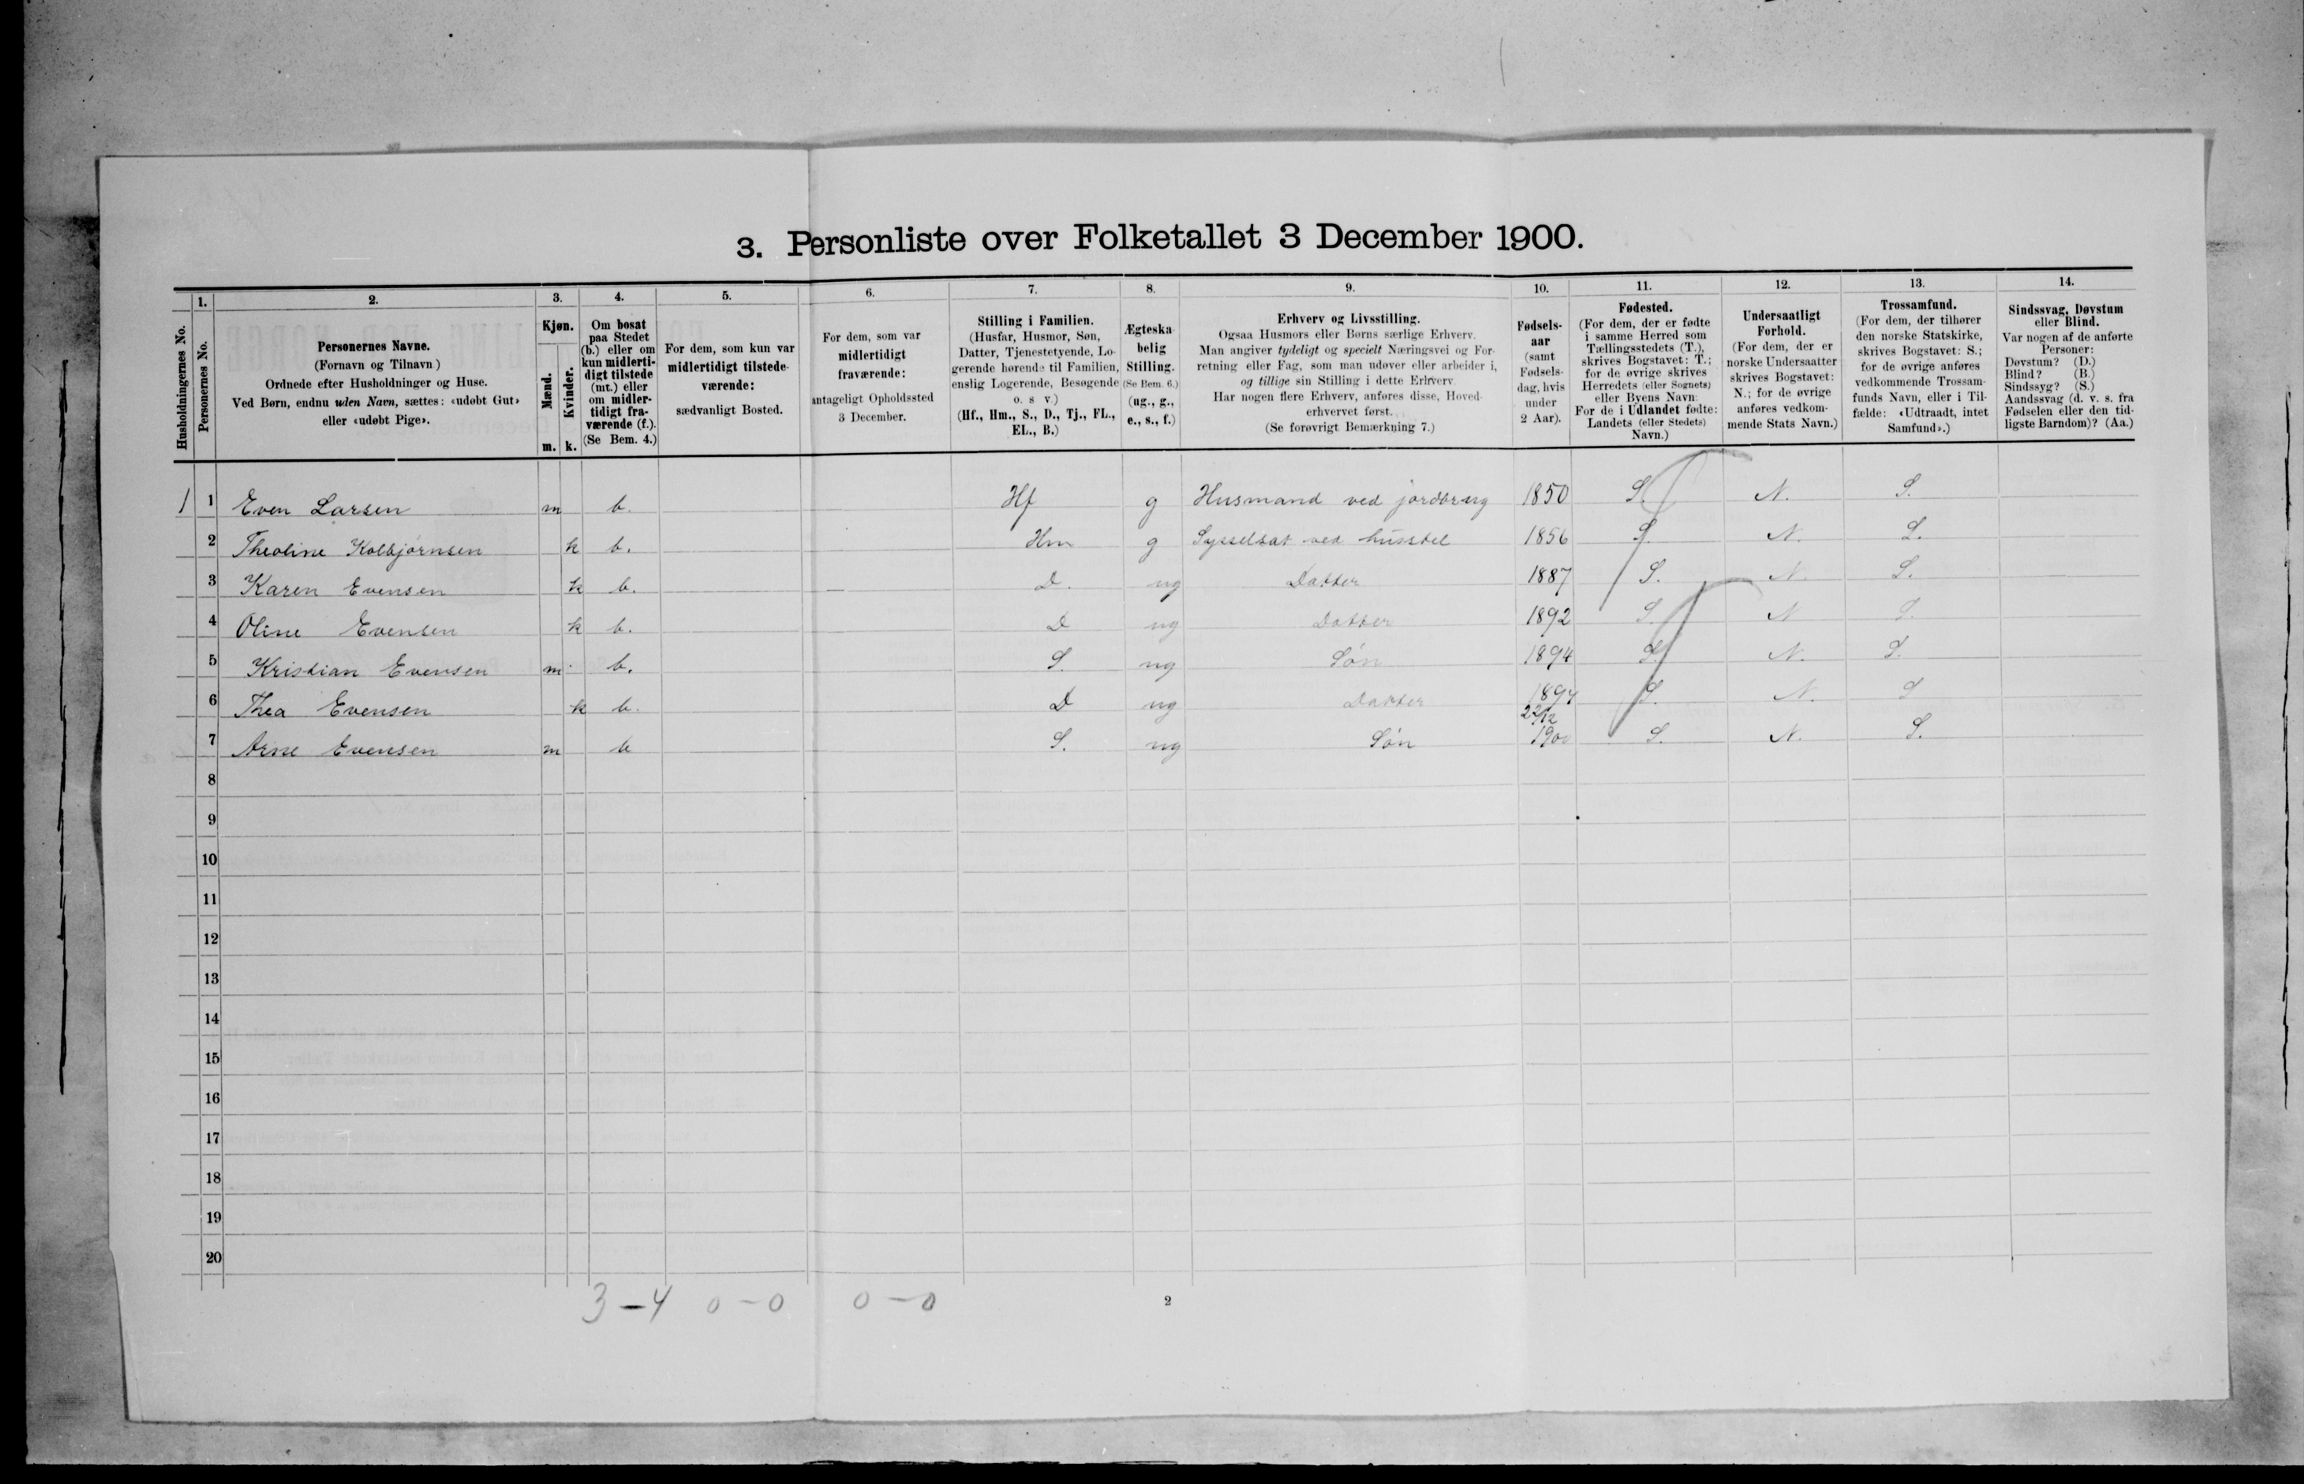 3. Personliste over Folketallet 3 December 1900.
1. 2. 3. 4. 5. 6. 7. 8. 9. 10. 11. 12. 13. 14.
Husholdningernes No.
Personernes No.
Personernes Navne.
(Fornavn og Tilnavn)
Ordnede efter Husholdninger og Huse.
Ved Børn, endnu uden Navn, sættes: «udøbt Gut»
eller «udøbt Pige».
Kjøn.
Mænd.
Kvinder.
m. k.
Om bosat
paa Stedet
(b.) eller om
kun midlerti-
digt tilstede
(mt.) eller
om midler-
tidigt fra-
værende (f.).
(Se Bem. 4.)
For dem, som kun var
midlertidigt tilstede-
værende:
sædvanligt Bosted.
For dem, som var
midlertidigt
fraværende:
antageligt Opholdssted
3 December.
Stilling i Familien.
(Husfar, Husmor, Søn,
Datter, Tjenestetyende, Lo-
gerende hørende til Familien,
enslig Logerende, Besøgende
o. s v.)
(Hf., Hm., S., D., Tj., FL.,
EL., B.)
Ægteska
belig
Stilling.
(Se Bem. 6.)
(ug., g.,
e., s., f.)
Erhverv og Livsstilling.
Ogsaa Husmors eller Børns særlige Erhverv.
Man angiver tydeligt og specielt Næringsvei og For-
retning eller Fag, som man udøver eller arbeider i,
og tillige sin Stilling i dette Erhverv
Har nogen flere Erhverv, anføres disse, Hoved-
erhvervet først.
(Se forøvrigt Bemærkning 7.)
Fødsels-
aar
(samt
Fødsels-
dag, hvis
under
2 Aar).
Fødested.
(For dem, der er fødte
i samme Herred som
Tællingsstedets (T.),
skrives Bogstavet: T.;
for de øvrige skrives
Herredets (eller Sognets)
eller Byens Navn
For de i Udlandet fødte:
Landets (eller Stedets)
Navn.)
Undersaatligt
Forhold.
(For dem, der er
norske Undersaatter
skrives Bogstavet:
N.; for de øvrige
anføres vedkom-
mende Stats Navn.)
Trossamfund.
(For dem, der tilhører
den norske Statskirke,
skrives Bogstavet: S.;
for de øvrige anføres
vedkommende Trossam-
funds Navn, eller i Til-
fælde: «Udtraadt, intet
Samfund».)
Sindssvag, Døvstum
eller Blind.
Var nogen af de anførte
Personer:
Døvstum? (D.)
Blind? (B.)
Sindssyg? (S.)
Aandssvag (d. v. s. fra
Fødselen eller den tid-
ligste Barndom)? (Aa.)
1 1 Even Larsen m b. Hf g Husmand ved jordbrug 1850 S. N. S.
2 Theoline Kolbjørnsen k b. Hm g Sysselsat ved husstel 1856 S. N. S.
3 Karen Evensen k b. D. ug Datter 1887 S. N. S.
4 Oline Evensen k b. D ug Datter 1892 S. N S.
5 Kristian Evensen m b. S. ug Søn 1894 S. N. S.
6 Thea Evensen k b. D ug Datter 1897 S. N. S
7 Arne Evensen m b S. ug Søn 22/12 1900 S. N. S.
8
9
10
11
12
13
14
15
16
17
18
19
20
3 – 4 0 – 0 0 – 0
2